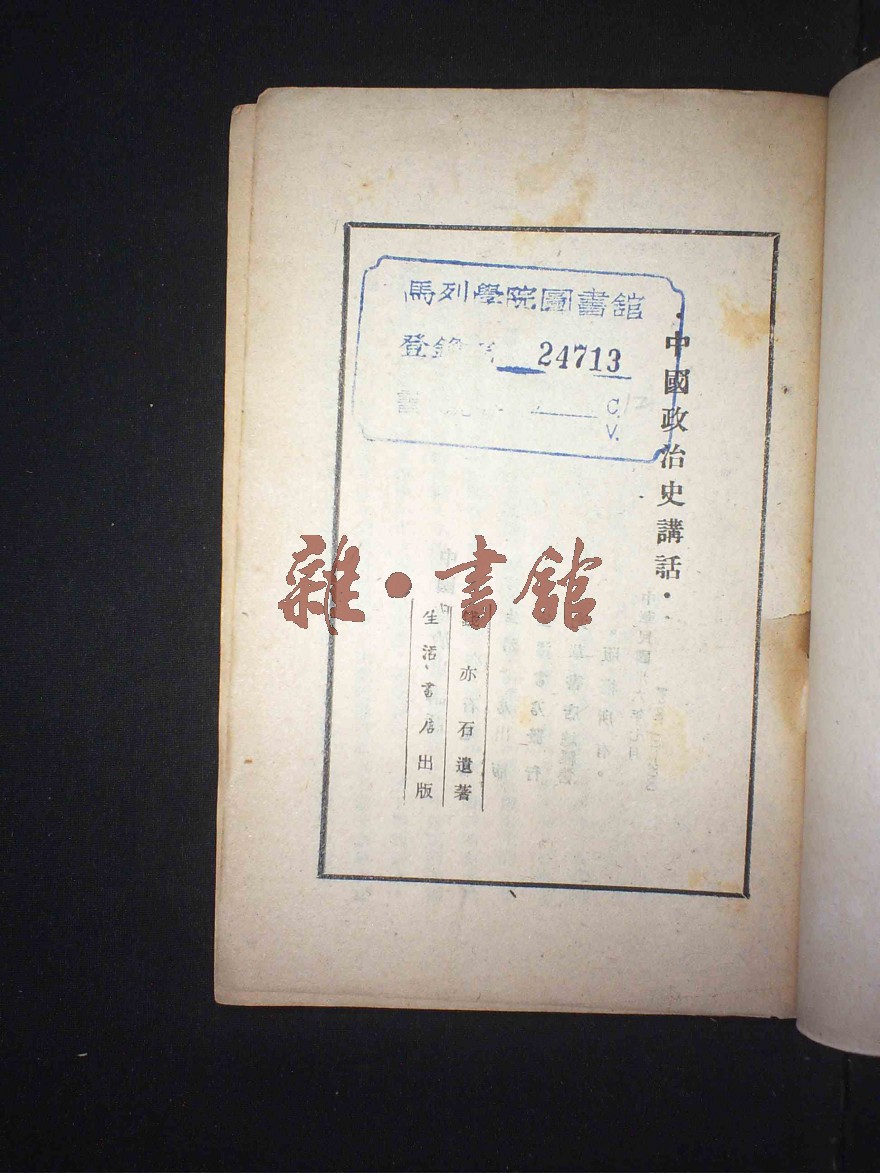 馬列學院圖書館
登錄 24713
書 C.
V.
·中國政治史講話·
亦石遺著
生活書店出版
雜·書館